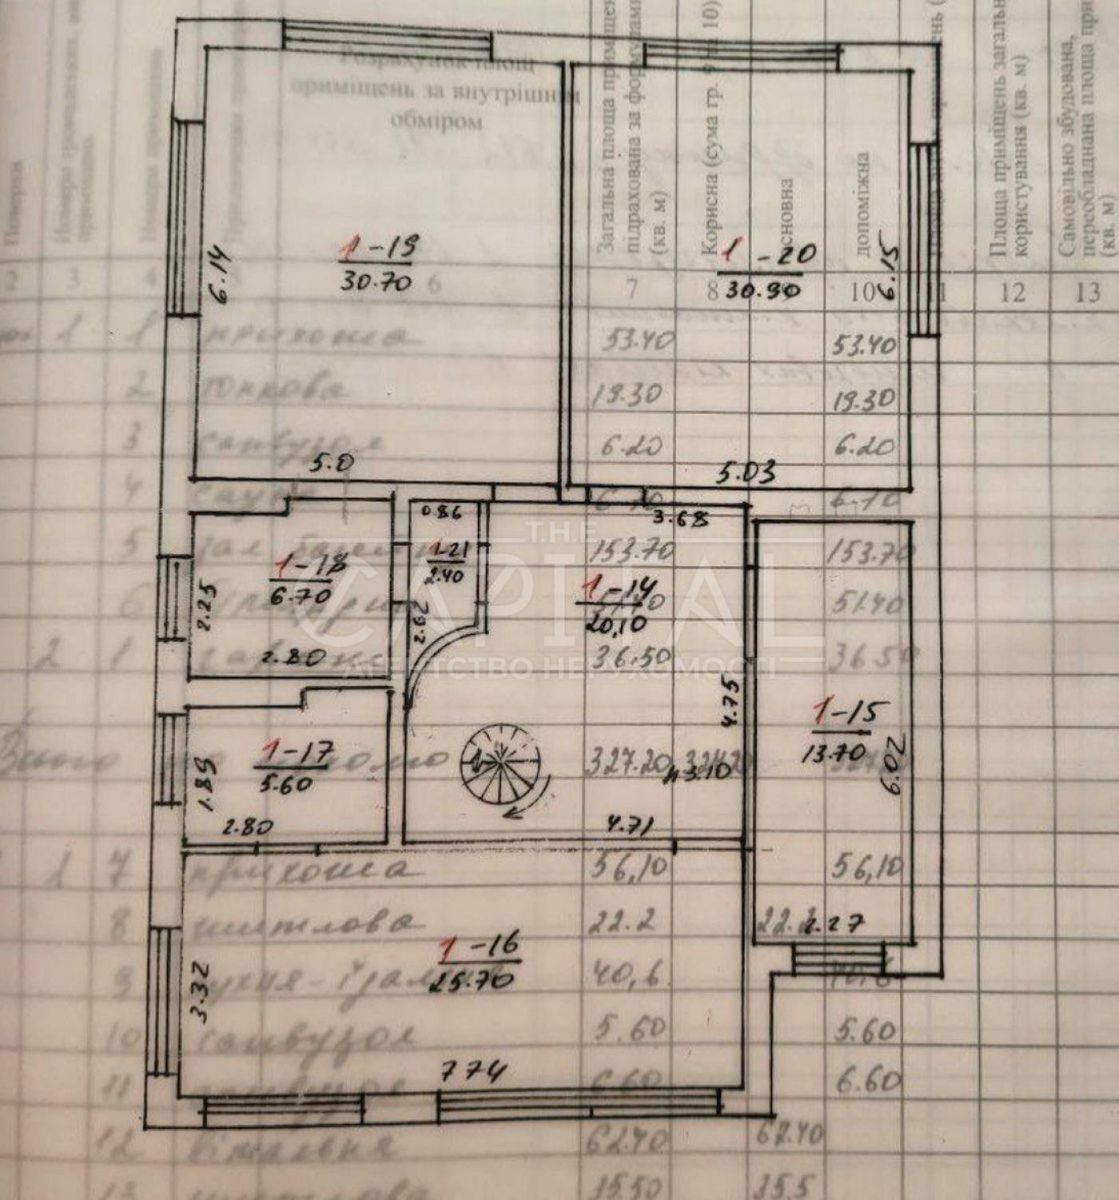 Розрахунок площ
приміщень за внутрішнім
обміром
Загальна площа приміщень
підрахована за формулами
(кв. м)
Корисна (сума гр. 9 та 10)
основна
допоміжна
Площа приміщень загального
користування (кв. м)
Самовільно збудована,
переобладнана площа
(кв. м)
2 3 4 6 7 8 10 11 12 13
1-19
30.70
6.14
5.0
1-20
30.90
6.15
5.03
1 1 прихожа 53.40 53.40
2 топкова 19.30 19.30
3 санвузол 6.20 6.20
4 сауна 6.10 6.10
5 153.70 153.70
6 51.40 51.40
2 1 гараж 36.50 36.50
327.20
0.86
3.68
1-21
2.40
2.62
1-18
6.70
2.25
2.80
1-14
20,10
4.75
4.71
43.10
THE
CAPITAL
АГЕНТСТВО НЕРУХОМОСТІ
1-15
13.70
6.02
2.27
1-17
5.60
1.89
2.80
1 7 прихожа 56,10 56,10
8 22.2 22.2
1-16
25.70
3.32
7.74
9 кухня-їдальня 40,6 40,6
10 санвузол 5.60 5.60
11 санвузол 6.60 6.60
12 вітальня 62.40 62.40
13 15.50 15.5